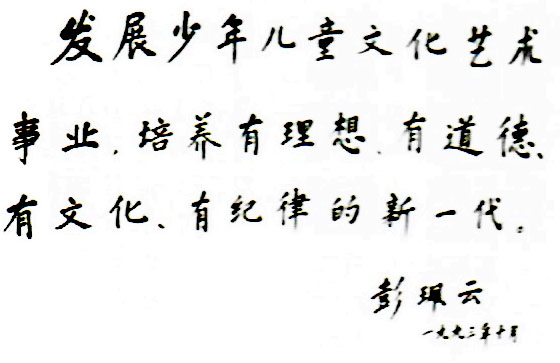 发展少年儿童文化艺术
事业，培养有理想、有道德、
有文化、有纪律的新一代。
彭珮云
一九九三年十月